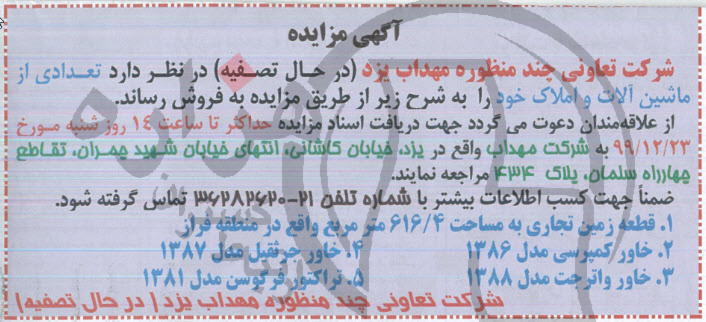 آگهی مزایده
شرکت تعاونی چند منظوره مهداب یزد (در حال تصفیه) در نظر دارد تعدادی از
ماشین آلات و املاک خود را به شرح زیر از طریق مزایده به فروش رساند.
از علاقه‌مندان دعوت می گردد جهت دریافت اسناد مزایده حداکثر تا ساعت ۱۴ روز شنبه مورخ
۹۹/۱۲/۲۳ به شرکت مهداب واقع در یزد، خیابان کاشانی، انتهای خیابان شهید چمران، تقاطع
چهارراه سلمان، پلاک ۴۳۴ مراجعه نمایند.
ضمناً جهت کسب اطلاعات بیشتر با شماره تلفن ۲۱-۳۶۲۸۲۶۲۰ تماس گرفته شود.
۱. قطعه زمین تجاری به مساحت ۶۱۶/۴ متر مربع واقع در منطقه فراز
۲. خاور کمپرسی مدل ۱۳۸۶ ۴. خاور جرثقیل مدل ۱۳۸۷
۳. خاور واترجت مدل ۱۳۸۸ ۵. تراکتور فرگوسن مدل ۱۳۸۱
شرکت تعاونی چند منظوره مهداب یزد ( در حال تصفیه)